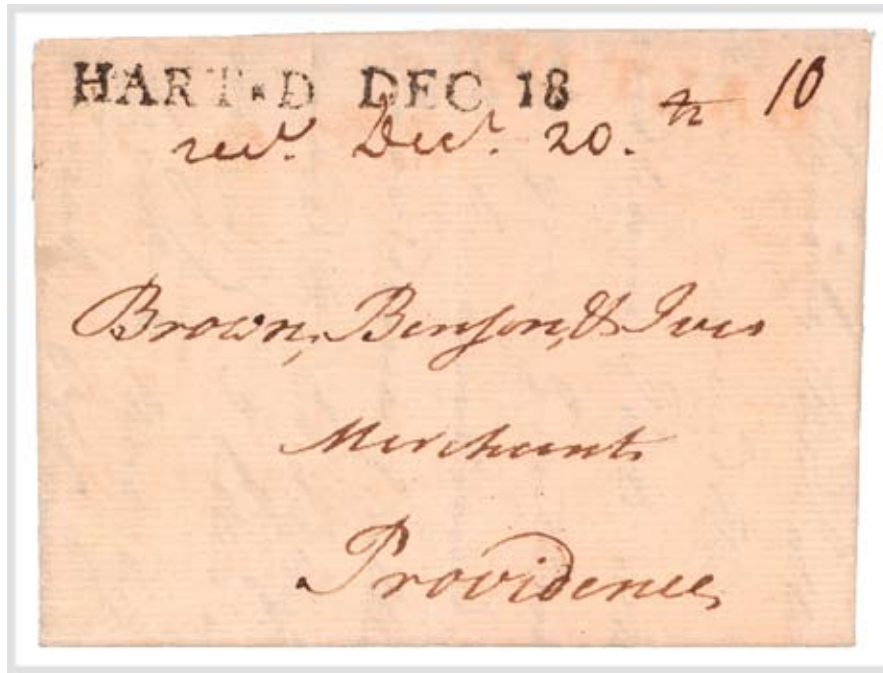 HART·D DEC 18
10
recd. Decr. 20.th
Brown, Benson, & Ives
Merchants
Providence